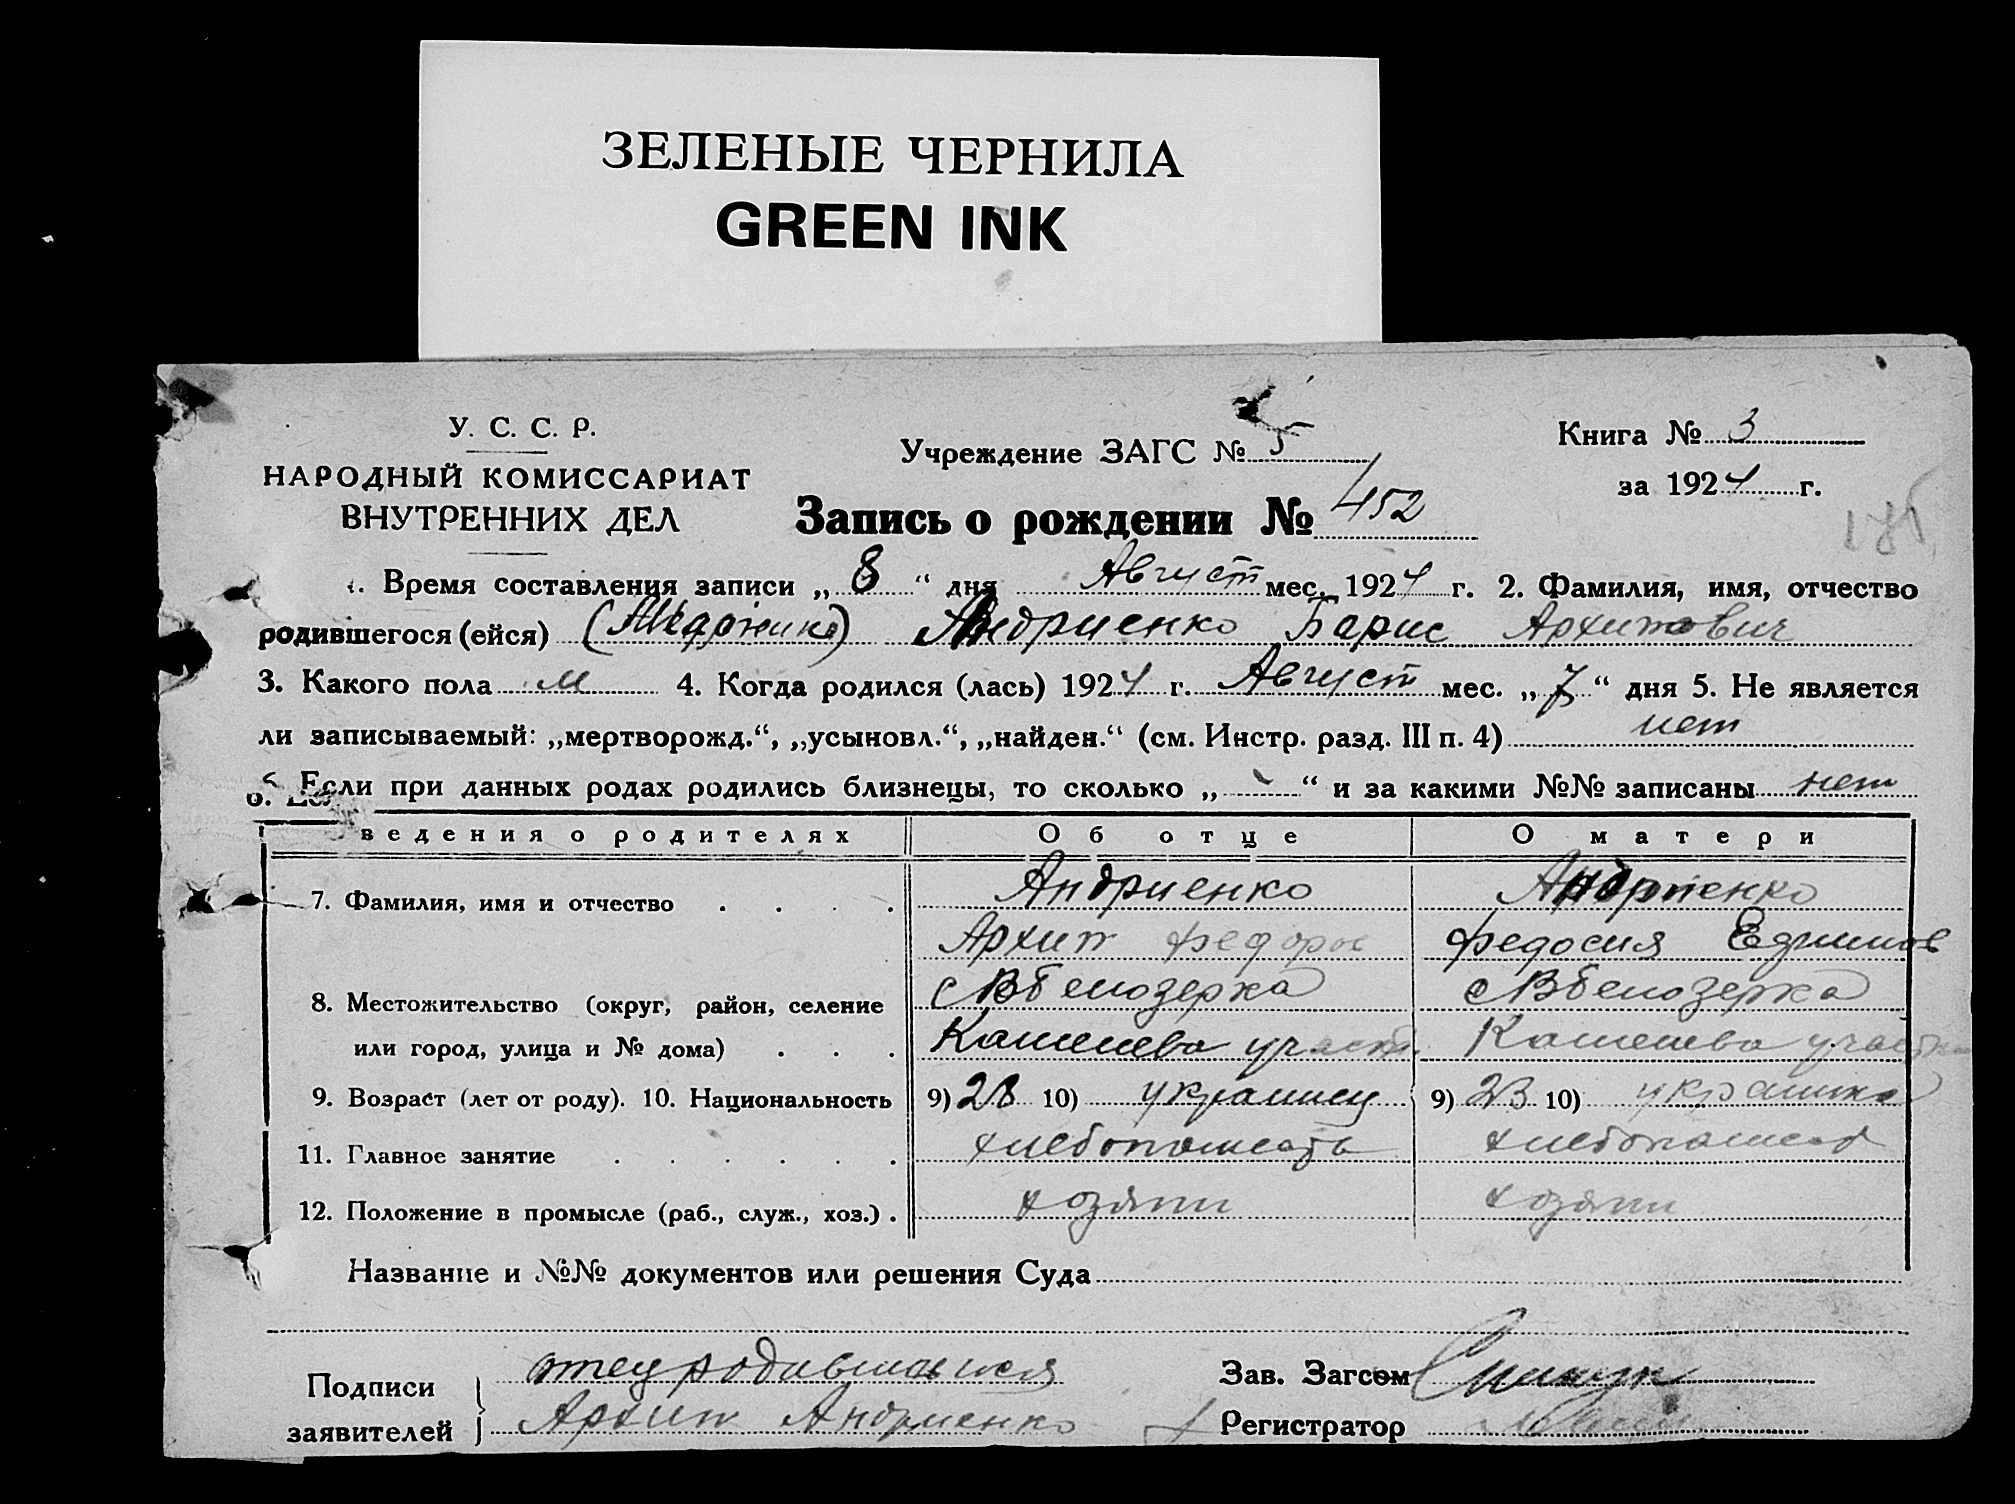 ЗЕЛЕНЫЕ ЧЕРНИЛА
GREEN INK
У. С. С. Р.
НАРОДНЫЙ КОМИССАРИАТ
ВНУТРЕННИХ ДЕЛ
Учреждение ЗАГС № 5
Книга № 3
за 1924 г.
Запись о рождении № 452
Время составления записи „ 8 “ дня Август мес. 1924 г. 2. Фамилия, имя, отчество
родившегося (ейся) Андриенко Барис Архипович
3. Какого пола м 4. Когда родился (лась) 1924 г. Август мес. „ 7 “ дня 5. Не является
ли записываемый: „мертворожд.“, „усыновл.“, „найден.“ (см. Инстр. разд. III п. 4) нет
6. Если при данных родах родились близнецы, то сколько „ - “ и за какими №№ записаны нет
ведения о родителях Об отце О матери
7. Фамилия, имя и отчество Андриенко Андриенко
Архип Федоров Федосия Ефимов
8. Местожительство (округ, район, селение с В белозерка с В белозерка
или город, улица и № дома)
9. Возраст (лет от роду). 10. Национальность 9) 28 10) украинец 9) 23 10) украинка
11. Главное занятие хлебопашество
12. Положение в промысле (раб., служ., хоз.) хозяин хозяин
Название и №№ документов или решения Суда
Подписи заявителей отец родившегося
Архип Андриенко
Зав. Загсом
Регистратор